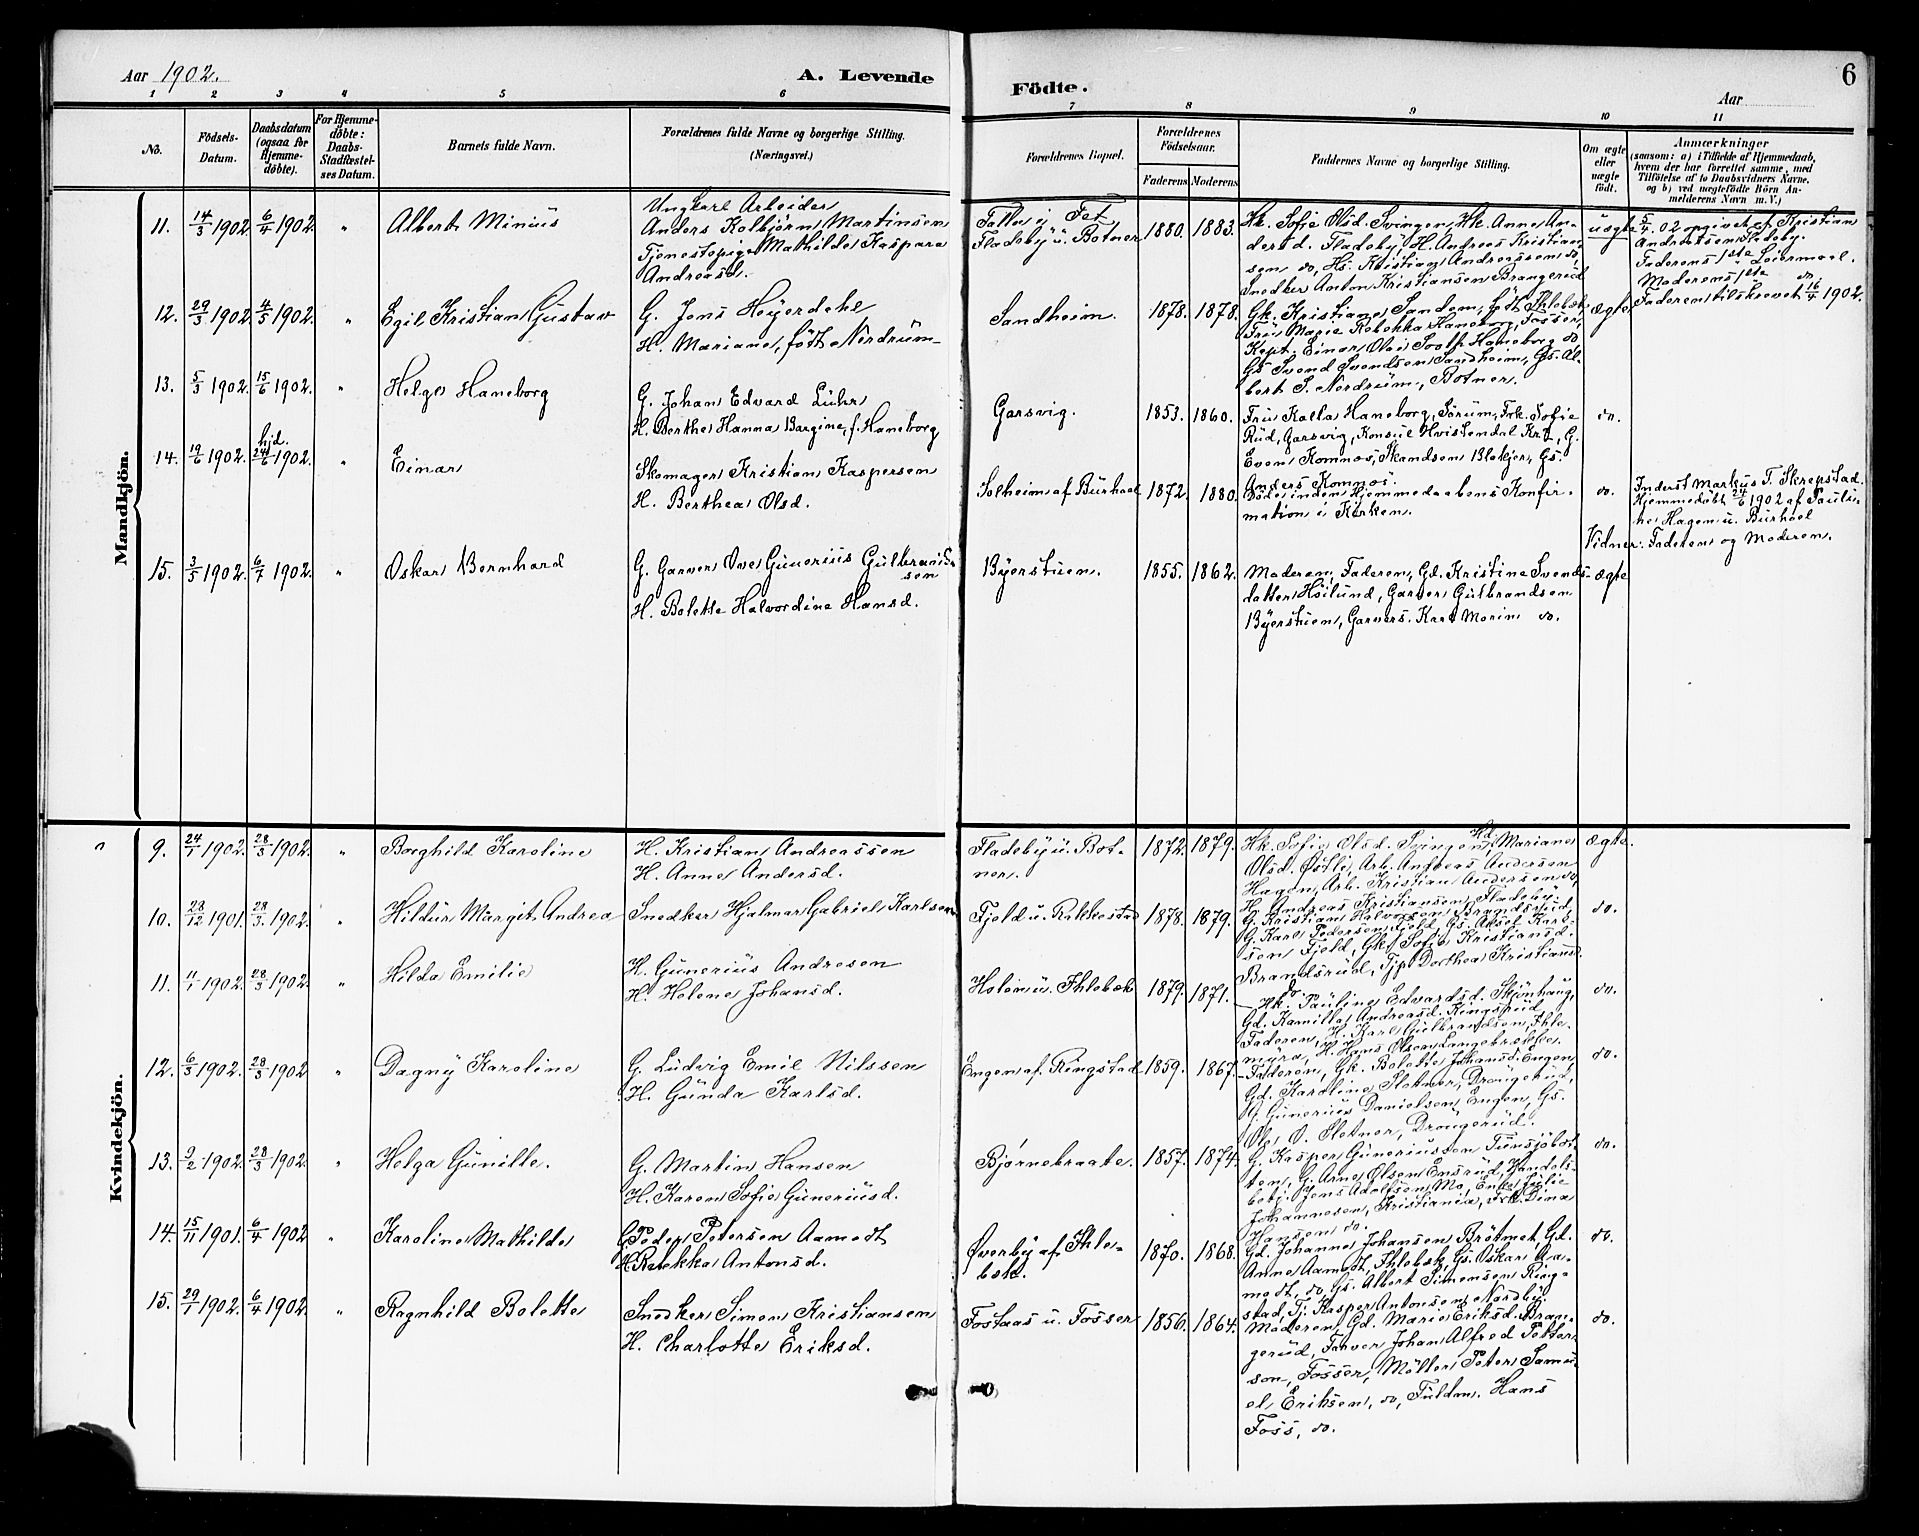 Aar 1902.
A. Levende
Födte.
Aar
6
1 2 3 4 5 6 7 8 9 10 11
No.
Födsels-Datum.
Daabsdatum (ogsaa for Hjemme-döbte).
For Hjemme-döbte: Daabs-Stadfæstel-ses Datum.
Barnets fulde Navn.
Forældrenes fulde Navne og borgerlige Stilling.
(Næringsvei.)
Forældrenes Bopæl.
Forældrenes Födselsaar.
Faderens Moderens
Faddernes Navne og borgerlige Stilling.
Om ægte eller uægte födt.
Anmærkninger
(saasom: a) i Tilfælde af Hjemmedaab,
hvem der har forrettet samme, med
Tilföielse af to Daabsvidners Navne,
og b) ved uægtefödte Börn An-
melderens Navn m.V.)
Mandkjön.
11. 14/3 1902 6/4 1902. " Albert Minius
Ungkarl Arbeider
Anders Kolbjörn Martinsen
Tjenestepige Mathilde Kaspara
Andreasd.
Falle i Fet
Fladeby u. Botner
1880. 1883.
Hk. Sofie Olsd. Svingen, Hk. Anne An-
dersd. Fladeby, H. Andreas Kristian-
sen do, Hs. Kristian Andreassen do,
Snedker Anton Kristiansen Brangerud
uægte
5/4 02 opgivet af Kristian
Andreassen Fladeby.
Faderens 1ste Leiermaal.
Moderens 1ste do
Faderen tilskrevet 16/4 1902.
12. 29/3 1902 4/5 1902. " Egil Kristian Gustav
G. Jens Höyerdahl
H. Mariane, født Nordrum
Sandheim. 1878. 1878.
Gk. Kristiane Sandem, født Ihlebæk,
Fru Marie Rebekka Haneborg, Fosser,
Kapt. Einar Olai Haneborg do,
Gs Svend Svendsen Sandheim, Gs. Al-
bert S. Nordrum, Botner.
ægte
13. 5/3 1902 15/6 1902. " Helge Haneborg
G. Johan Edvard Lühr
H. Berthe Hanna Bargine, f. Haneborg
Garsvig. 1853. 1860.
Fru Kalla Haneborg, Sörum, Frk. Sofie
Rud, Garsvig, Konsul Hvistendal Kra, G.
Even Komnæs, Skandsen Blakjer, Gs.
Anders Komnæs.
do.
14. 19/6 1902. hjd. 24/6 1902. " Einar
Skomager Kristian Kaspersen
H. Berthea Olsd.
Solheim af Burhoel 1872. 1880.
Döde inden Hjemmedaabens Konfir-
mation i Kirken.
do.
Inderst Markus T. Skrepstad.
Hjemmedöbt 24/6 1902 af Pauli-
ne Hagen u. Burhoel
Vidner: Faderen og Moderen.
15. 3/5 1902 6/7 1902. " Oskar Bernhard
G. Garver Ove Gunerius Gulbrand-
sen
H. Bolette Halvordine Hansd.
Byerstuen. 1855. 1862.
Moderen, Faderen, Gd. Kristine Svends-
datter Höilund, Garver Gulbrandsen
Byerstuen, Garvers. Karl Marin do.
ægte
Kvindekjön.
9. 24/1 1902. 28/3 1902. " Borghild Karoline
H. Kristian Andreassen
H. Anne Andersd.
Fladeby u. Bot-
ner.
1872. 1879.
Hk. Sofie Olsd. Svingen, Hd. Mariane
Olsd. Østli, Arb. Andreas Andersen
Hagen, Arb. Kristian Andersen do,
H. Andreas Kristiansen Fladeby
ægte.
10. 23/12 1901. 28/3 1902. " Hildur Margit Andrea
Snedker Hjalmar Gabriel Karlsen
Fjeld u. Rakkestad 1878. 1879.
G. Kristian Halvorsen Brandsrud,
G. Karl Pedersen Fjeld, Gs. Aksel Karl-
sen Fjeld, Gk. Sofie Kristiansd.
Brandsrud, Tjp. Dorthea Kristiansd.
do
do.
11. 11/1 1902. 28/3 1902. " Hilda Emilie
H. Gunerius Andresen
H. Helene Johansd.
Holen u. Ihlebæk 1879. 1871.
Hk. Pauline Edvardsd. Skjönhaug,
Gd. Kamilla Andreasd. Ringsrud,
Faderen, H. Karl Gulbrandsen, Ihle-
myra, H. Hans Olsen Langebrække.
do.
12. 6/3 1902. 28/3 1902 " Dagny Karoline
G. Ludvig Emil Nilssen
H. Gunda Karlsd.
Engen af Ringstad 1859. 1867.
Faderen, Gk. Bolette Johansd. Engen
Gd. Karoline Sletner, Drougerud,
G. Gunerius Danielsen, Engen, Gs.
Ole O. Sletner, Drougerud.
do.
13. 9/2 1902. 28/3 1902. " Helga Gunille.
G. Martin Hansen
H. Karen Sofie Guneriusd.
Bjørnebraate. 1857. 1874.
G. Kasper Guneriussen Tunsjøbot-
ten, G. Arne Olsen Ensrud, Handels-
betj. Jens Adolfsen, Mo, Enke Julie
Johannesen, Kristiania, Frk. Dina
Hansen do.
do.
14. 15/11 1901. 6/4 1902 " Karoline Mathilde
G. Peder Petersen Aamodt
H. Rebekka Antonsd.
Øverby af Ihle-
bæk.
1870. 1868.
Gd. Johanne Johansen Brøtmet, Gd.
Anne Aamodt, Ihlebæk, Gs. Oskar Aa-
modt, do, Gs. Albert Simensen Ring-
stad, Tj. Kasper Antonsen Nordby.
do.
15. 29/1 1902. 6/4 1902 " Ragnhild Bolette
Snedker Simen Kristiansen
H. Charlotte Eriksd.
Fostaas u. Fosser 1856. 1864.
Moderen, Gd. Marie Eriksd. Bran-
gerud, Farver Johan Alfred Petter-
son, Fosser, Möller Peter Samu-
el Eriksen, do, Fuldm. Hans
Foss, do.
do.